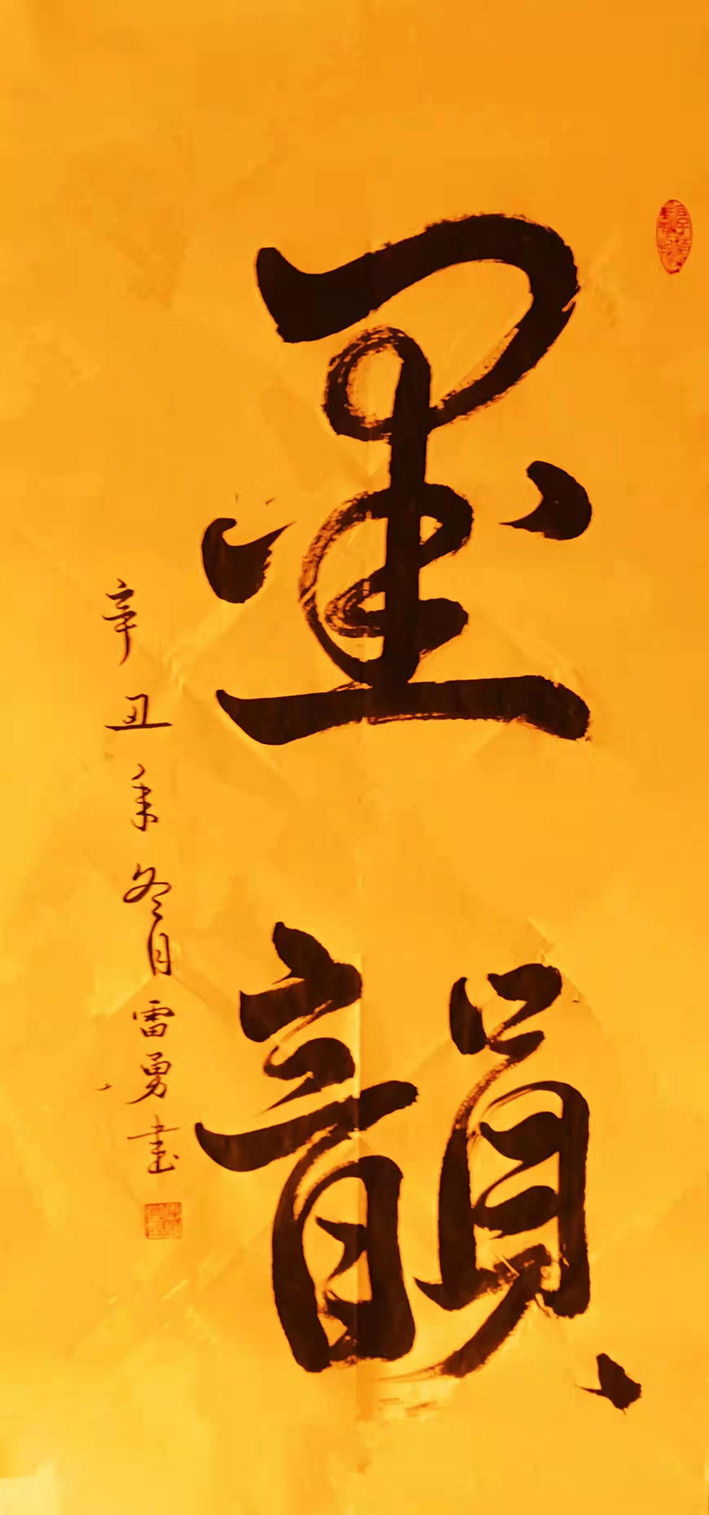 墨韻
辛丑年冬月雷勇書